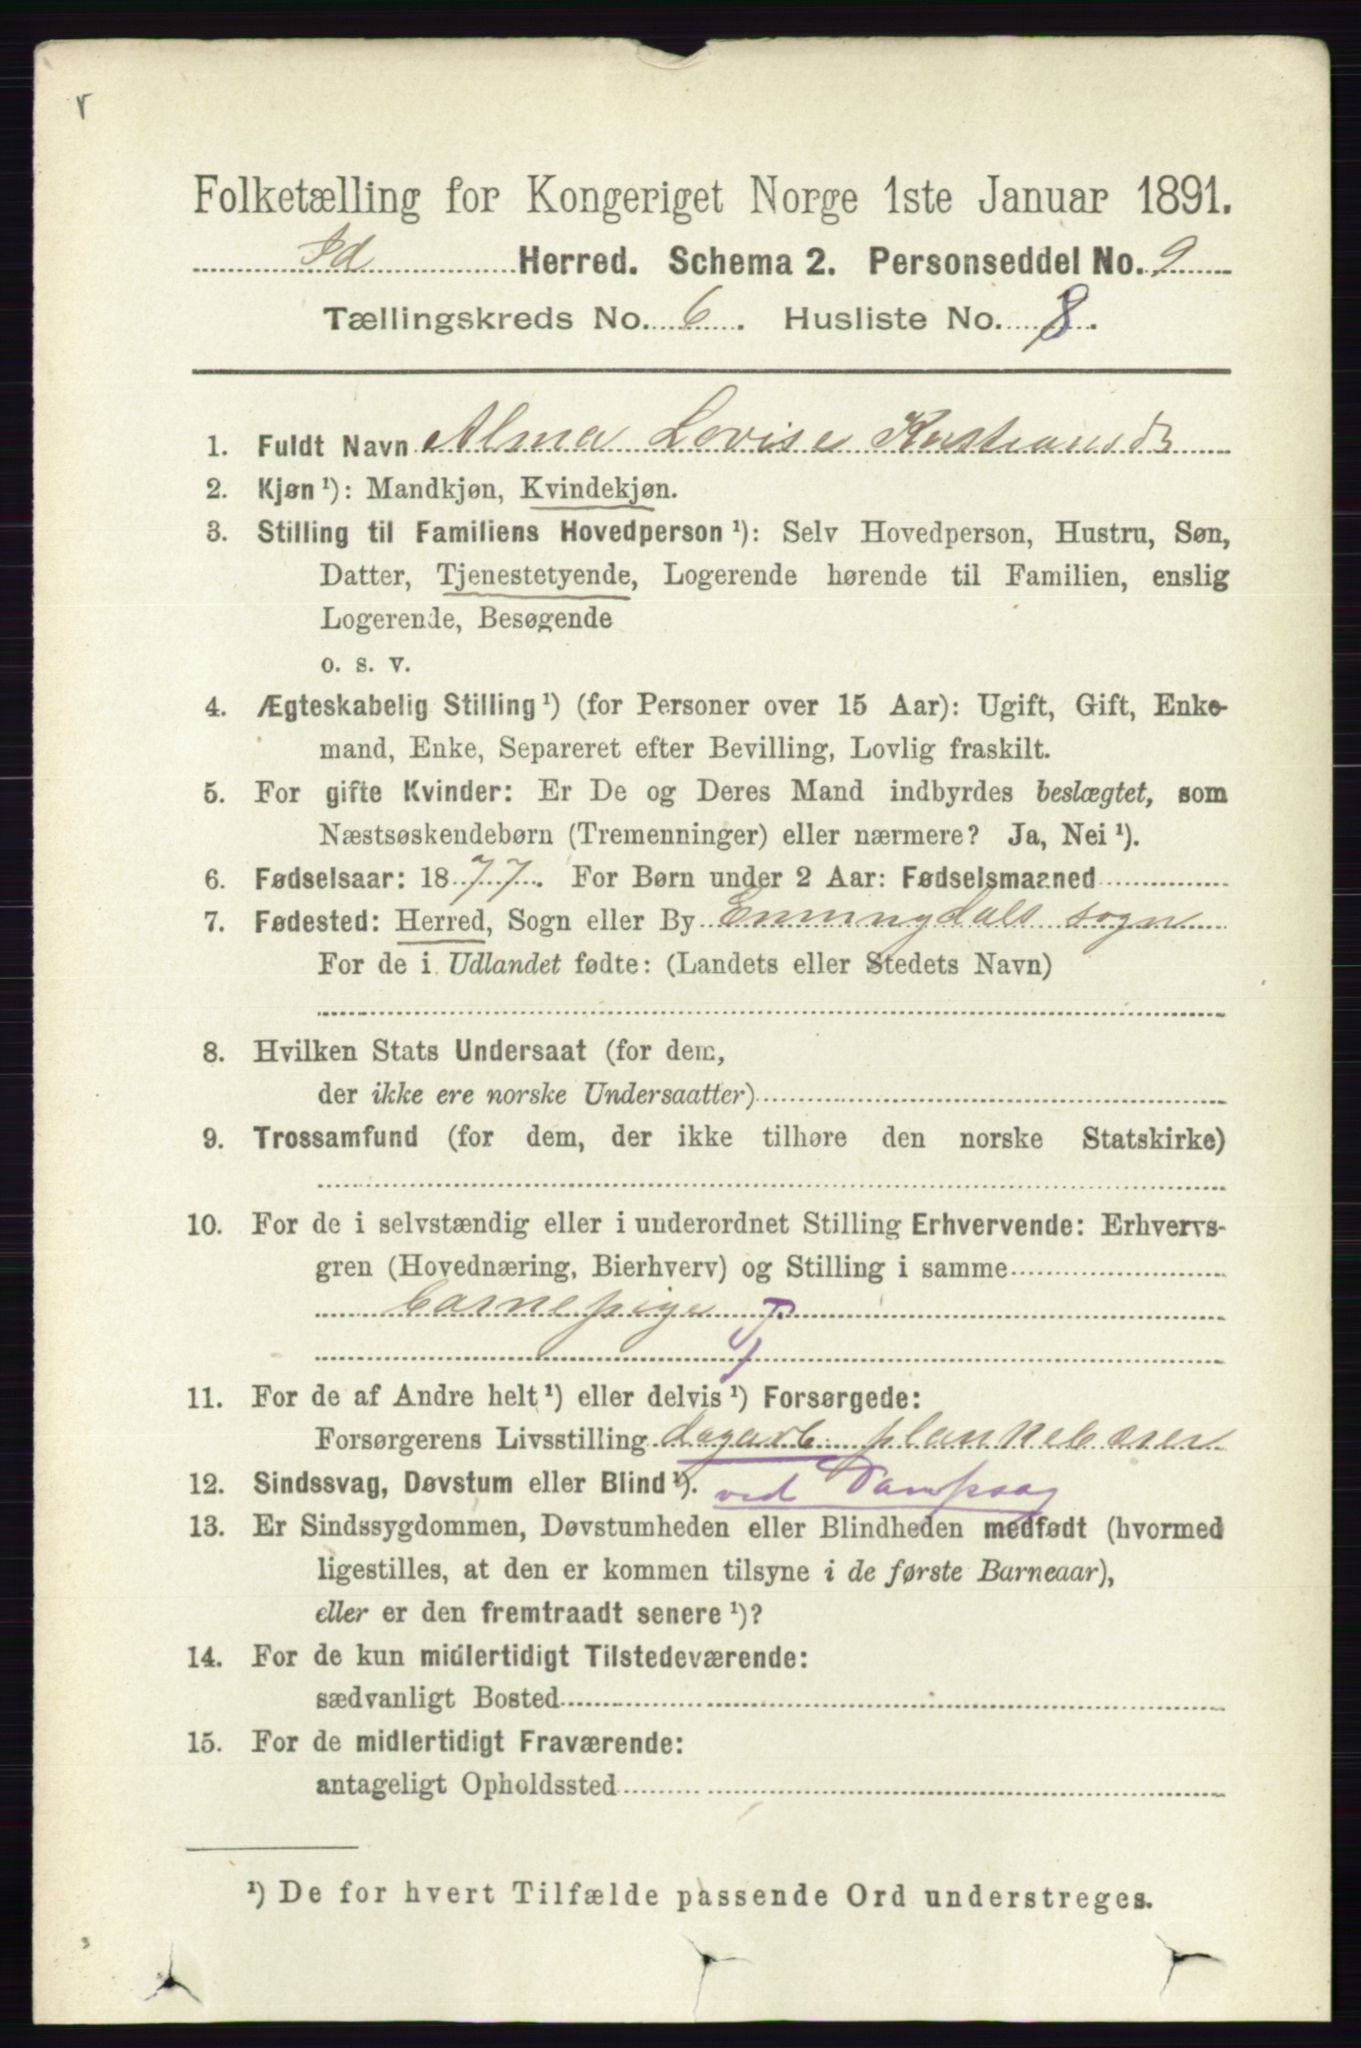 Folketælling for Kongeriget Norge 1ste Januar 1891.
Id Herred. Schema 2. Personseddel No. 9
Tællingskreds No. 6. Husliste No. 8.
1. Fuldt Navn Alma Lovise Kristiansdr
2. Kjøn ¹): Mandkjøn, Kvindekjøn.
3. Stilling til Familiens Hovedperson ¹): Selv Hovedperson, Hustru, Søn,
Datter, Tjenestetyende, Logerende hørende til Familien, enslig
Logerende, Besøgende
o. s. v.
4. Ægteskabelig Stilling ¹) (for Personer over 15 Aar): Ugift, Gift, Enke-
mand, Enke, Separeret efter Bevilling, Lovlig fraskilt.
5. For gifte Kvinder: Er De og Deres Mand indbyrdes beslægtet, som
Næstsøskendebørn (Tremenninger) eller nærmere? Ja, Nei ¹).
6. Fødselsaar: 1877. For Børn under 2 Aar: Fødselsmaaned
7. Fødested: Herred, Sogn eller By Enningdals sogn
For de i Udlandet fødte: (Landets eller Stedets Navn)
8. Hvilken Stats Undersaat (for dem,
der ikke ere norske Undersaatter)
9. Trossamfund (for dem, der ikke tilhøre den norske Statskirke)
10. For de i selvstændig eller i underordnet Stilling Erhvervende: Erhvervs-
gren (Hovednæring, Bierhverv) og Stilling i samme
barnepige T.
11. For de af Andre helt ¹) eller delvis ¹) Forsørgede:
Forsørgerens Livsstilling dagarb. plankebærer
12. Sindssvag, Døvstum eller Blind ¹). ved Dampsag
13. Er Sindssygdommen, Døvstumheden eller Blindheden medfødt (hvormed
ligestilles, at den er kommen tilsyne i de første Barneaar),
eller er den fremtraadt senere ¹)?
14. For de kun midlertidigt Tilstedeværende:
sædvanligt Bosted
15. For de midlertidigt Fraværende:
antageligt Opholdssted
¹) De for hvert Tilfælde passende Ord understreges.